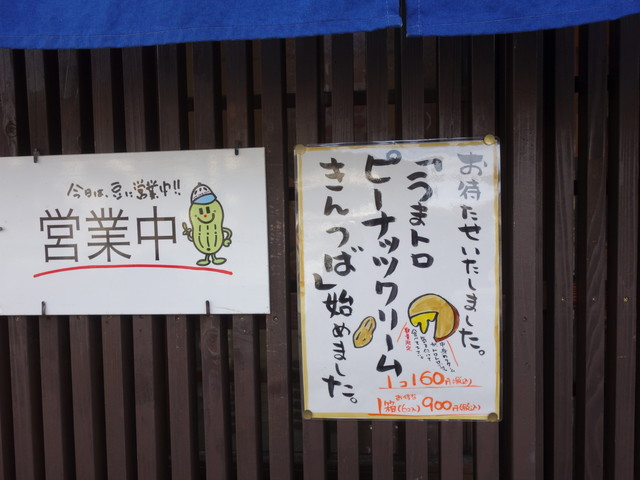 今日は、豆に営業中!!
営業中
お待たせいたしました。
「うまトロ
ピーナッツクリーム
きんつば」始めました。
1コ160円(税込)
1箱(6コ入)900円(税込)